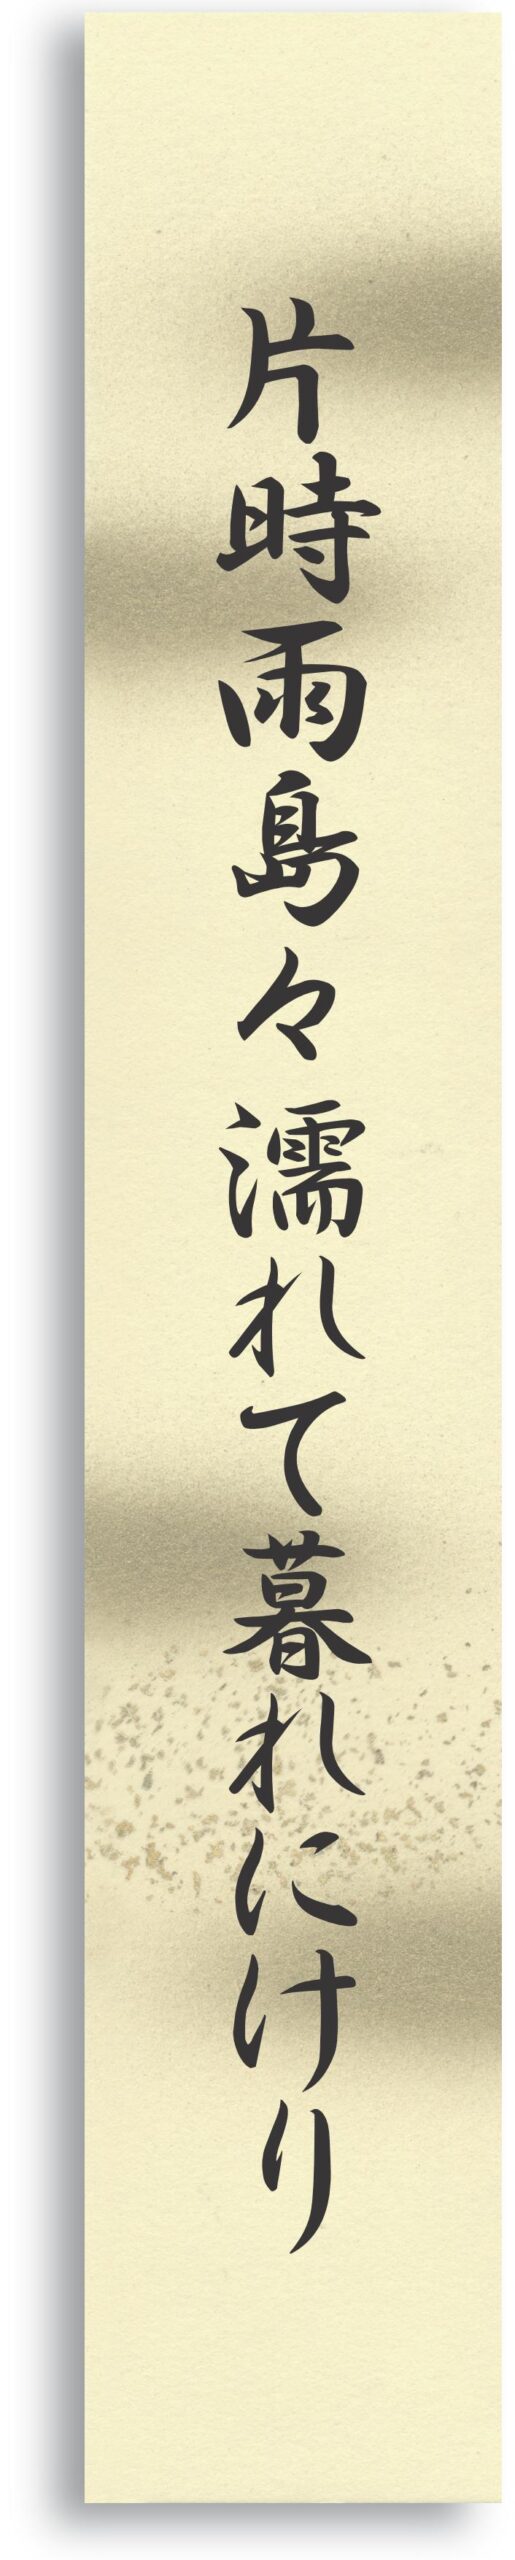 片時雨島々濡れて暮れにけり